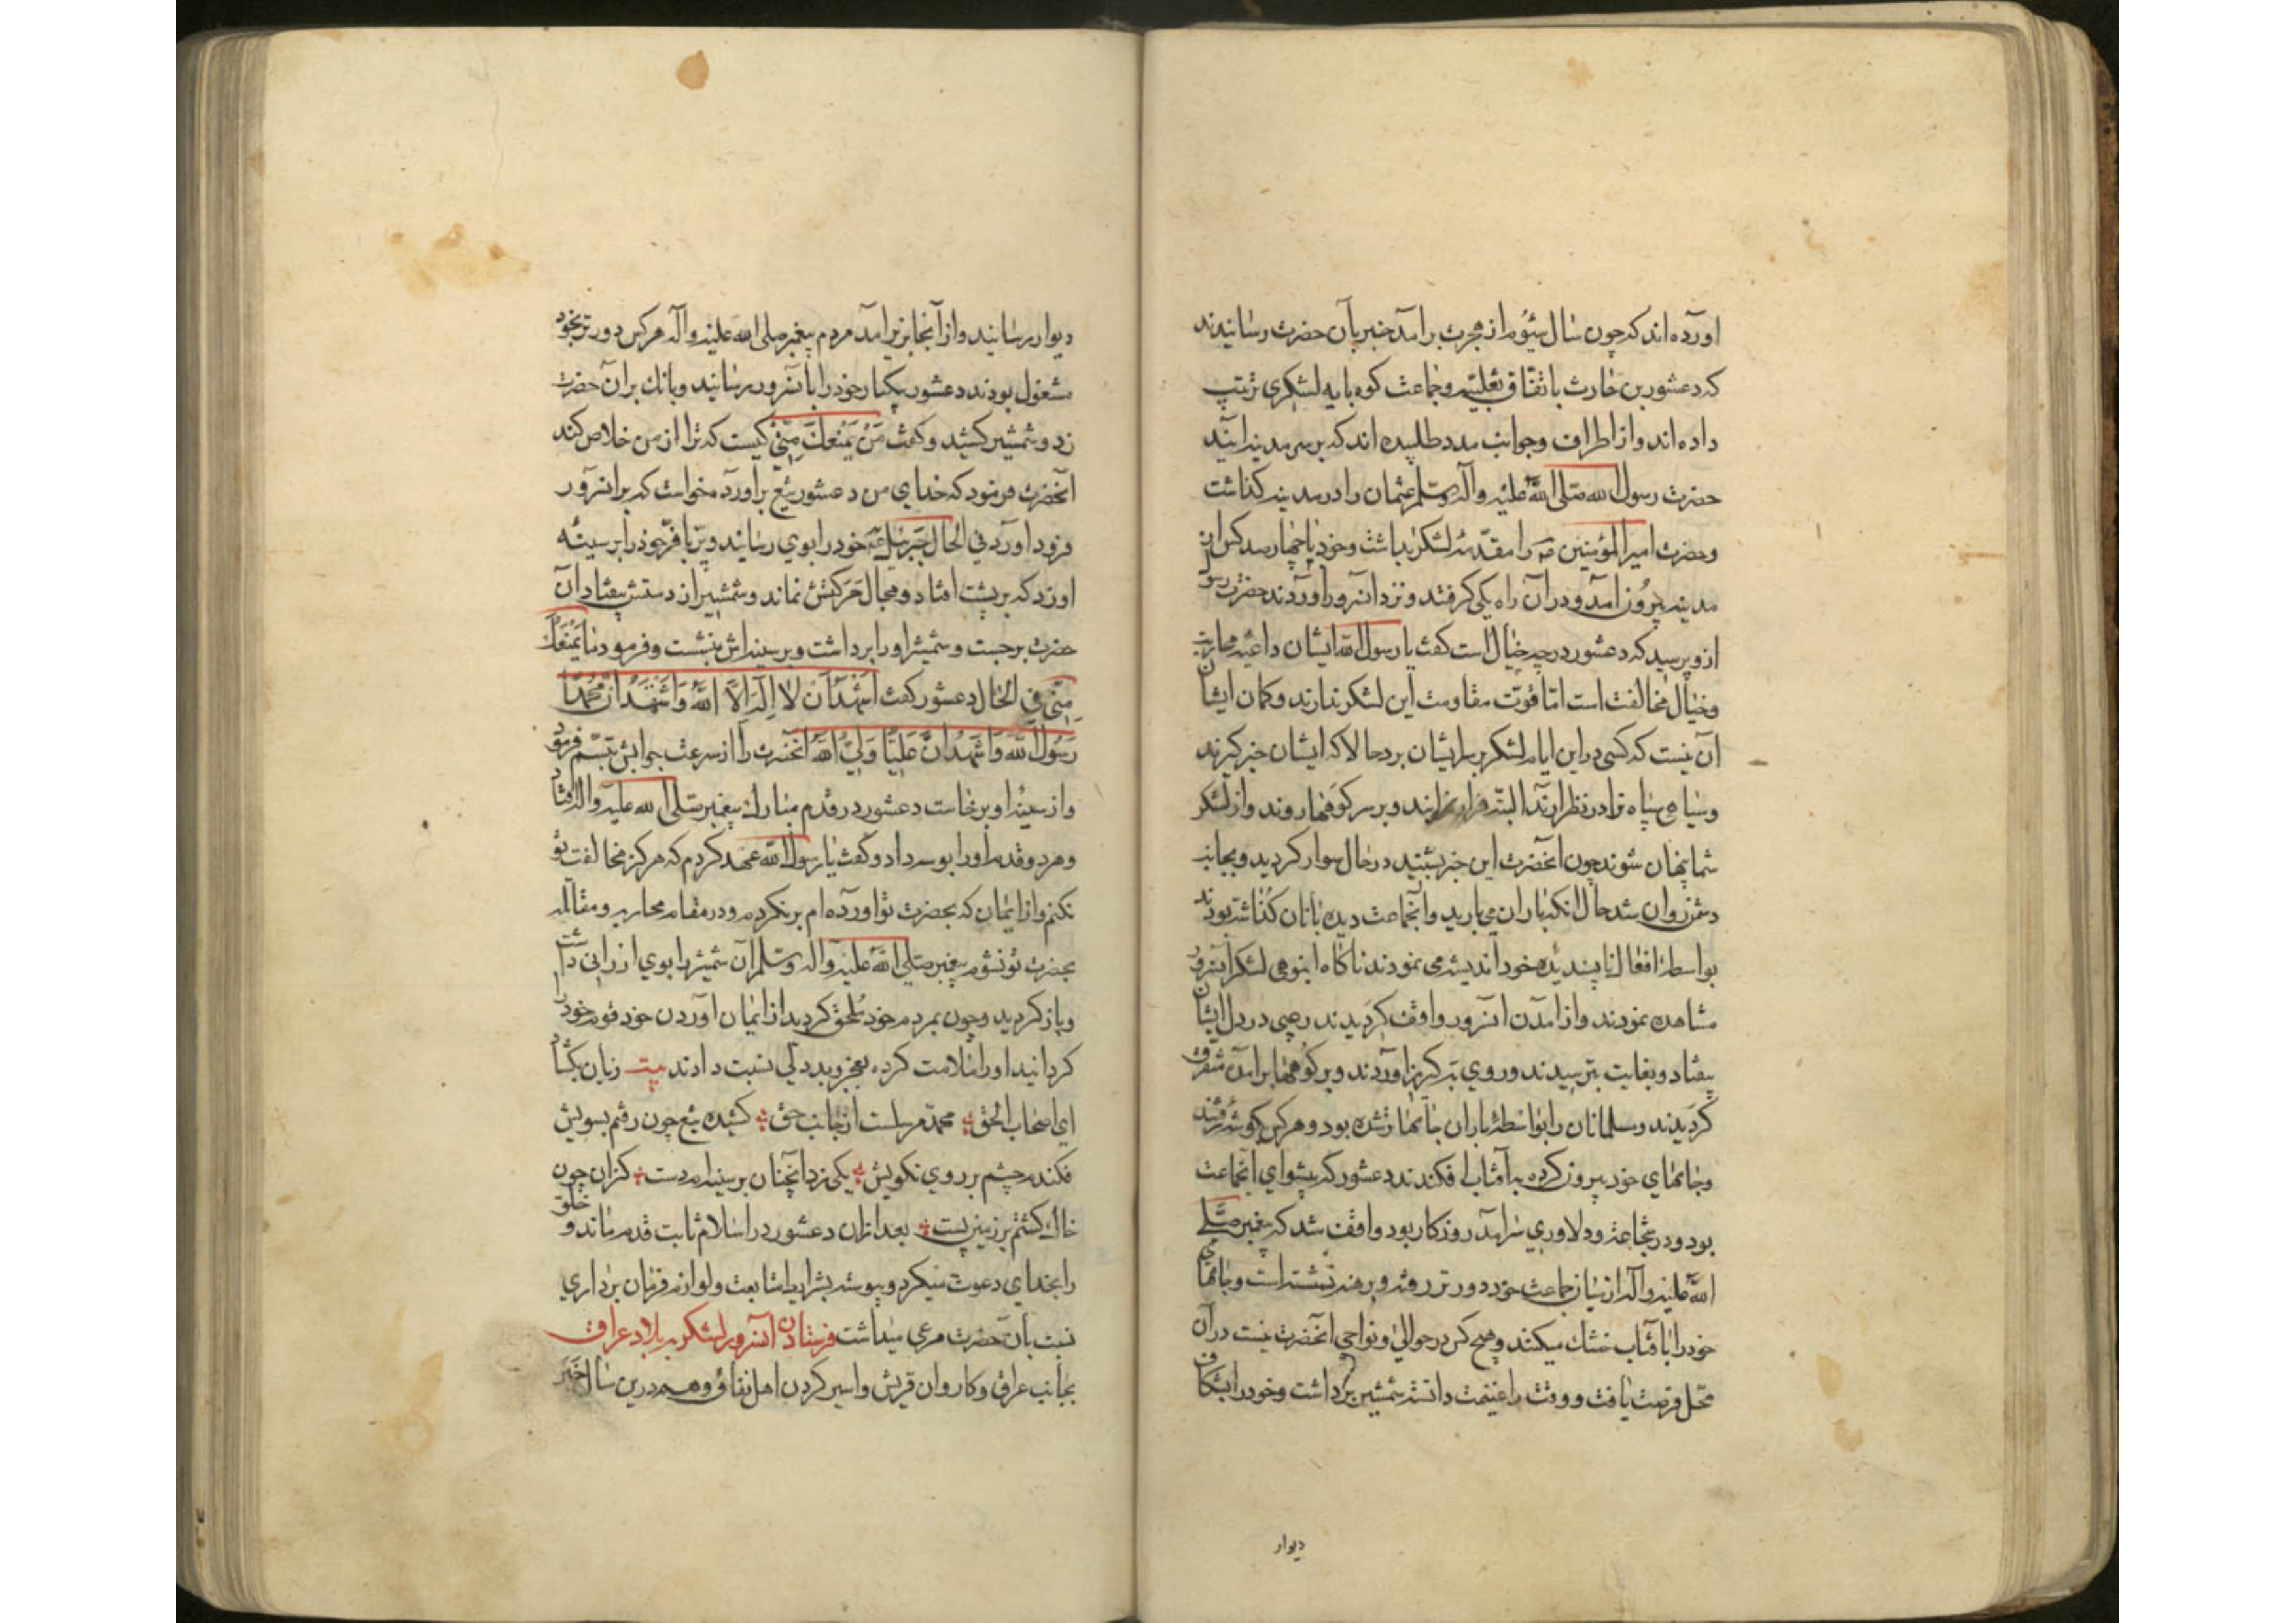 اورده‌اند که چون سال سیُوم از هجرت برامد خبر بآن حضرت رسانیدند
که دعشور بن حارث باتفاق تعلبیه وجماعت کوه بایه لشکری ترتیب
داده‌اند واز اطراف وجوانب مدد طلبیده‌اند که بر سر مدینه ایند
حضرت رسول الله صلی اللّه علیه وآله وسلم عثمان را در مدینه کذاشت
وحضرت امیرالمؤمنین را مقدّمه لشکر بداشت وخود با چهارصد کس از
مدینه بیرون آمد ودر آن راه یکی کرفتند ونزد انسرور اوردند حضرت رسول
از و پرسید که دعشور در چه خیال است کفت یا رسول اللّه ایشان داعیه محاربه
وخیال مخالفت است امّا قوّت مقاومت این لشکر ندارند وکمان ایشان
آن نیست که کسی در این ایام لشکر بر سر ایشان برد حالا که ایشان خبر کیرند
وسیاهی سپاه ترا در نظر ارند البته فرار نمایند وبر سر کوهها روند واز لشکر
شما پنهان شوند چون آنحضرت این خبر بشنید در حال سوار کردید وبجانب
دشمن روان شد حال انکه باران می بارید وآنجماعت دیده بانان کذاشته بودند
بواسطه افعال ناپسندیده خود اندیشه می نمودند ناکاه انبوهی لشکر آنسرور
مشاهده نمودند واز امدن انسرور واقف کردیدند رعبی در دل ایشان
بیفتاد وبغایت بترسیدند وروی بکریز اوردند وبر کوهها بر امده متفرق
کردیدند ومسلمانان را بواسطه باران جامها تر شده بود وهر کس بکوشه رفتند
وجامهای خود بیرون کرده به آفتاب افکندند دعشور که پیشوای آنجماعت
بود ودر شجاعت ودلاوری سرامد روزکار بود واقف شد که پیغمبر صلی
اللّه علیه وآله از میان جماعت خود دورتر رفته وبرهنه نشسته است وجامهای
خود را بآفتاب خشک میکنند وهیچ کس در حوالی ونواحی انحضرت نیست در آن
محل فرصت یافت ووقت را غنیمت دانسته شمشیر برداشت وخود را بشکاف
دیوار
دیوار رسانید واز آنجا بزیر امد مردم پیغمبر صلی اللّه علیه وآله هر کس دورتر بخود
مشغول بودند دعشور یکبار خود را بآنسرور رسانید وبانک بر ان حضرت
زد وشمشیر کشید وکفت مَنْ یَمْنَعُکَ مِنِّی کیست که ترا از من خلاص کند
آنحضرت فرمود که خدای من دعشور تیغ براورد میخواست که بر انسرور
فرود اورد فی الحال جبرئیل خود را بوی رسانید وپر با فرّ خود را بر سینه
او زد که بر پشت افتاد ومجال حرکتش نماند وشمشیر از دستش بیفتاد آن
حضرت برجست وشمشیر اورا برداشت وبر سینه‌اش بنشست وفرمود من یمنعک
مِنّی فی الحال دعشور کفت اَشْهَدُ اَنْ لا اِلٰهَ اِلاَّ اللّهُ وَاَشْهَدُ اَنَّ مُحَمَّدًا
رَسُولُ اللّه وَاَشْهَدُ اَنَّ عَلِیًّا وَلِیُّ اللّه آنحضرت را از سرعت جوابش تبسّم فرمود
واز سینه او برخاست دعشور در قدم مبارک پیغمبر صلی الله علیه واله افتاد
وهر دو قدم اورا بوسه داد وکفت یا رسول اللّه عهد کردم که هرکز مخالفت تو
نکنم واز ایمان که بحضرت تو اورده‌ام برنکردم ودر مقام محاربه ومقاتله
بحضرت تو نشوم پیغمبر صلی اللّه علیه واله وسلم آن شمشیر را بوی ارزانی داشت
وباز کردید وچون بمردم خود ملحق کردید از ایمان اوردن خود قوم خود را
کردانید اورا ملامت کرده بعجز وبددلی نسبت دادند بیت زبان بکشاد
ای اصحاب الحق محمّد مرسلست از جانب حق کشیده تیغ چون رفتم بسویش
فکندم چشم بر روی نکویش یکی زد آنچنان بر سینه‌ام دست کزان چون
خاک کشتم بر زمین پست بعد از ان دعشور در اسلام ثابت قدم ماند وخلق
را بخدای دعوت میکرد وپیوسته بشرایط متابعت ولوازم فرمان برداری
نسبت بآن حضرت مرعی میداشت فرستادن آنسرور لشکر به بلاد عراق
بجانب عراق وکاروان قریش واسیر کردن اهل نفاق وهم درین سال خبر